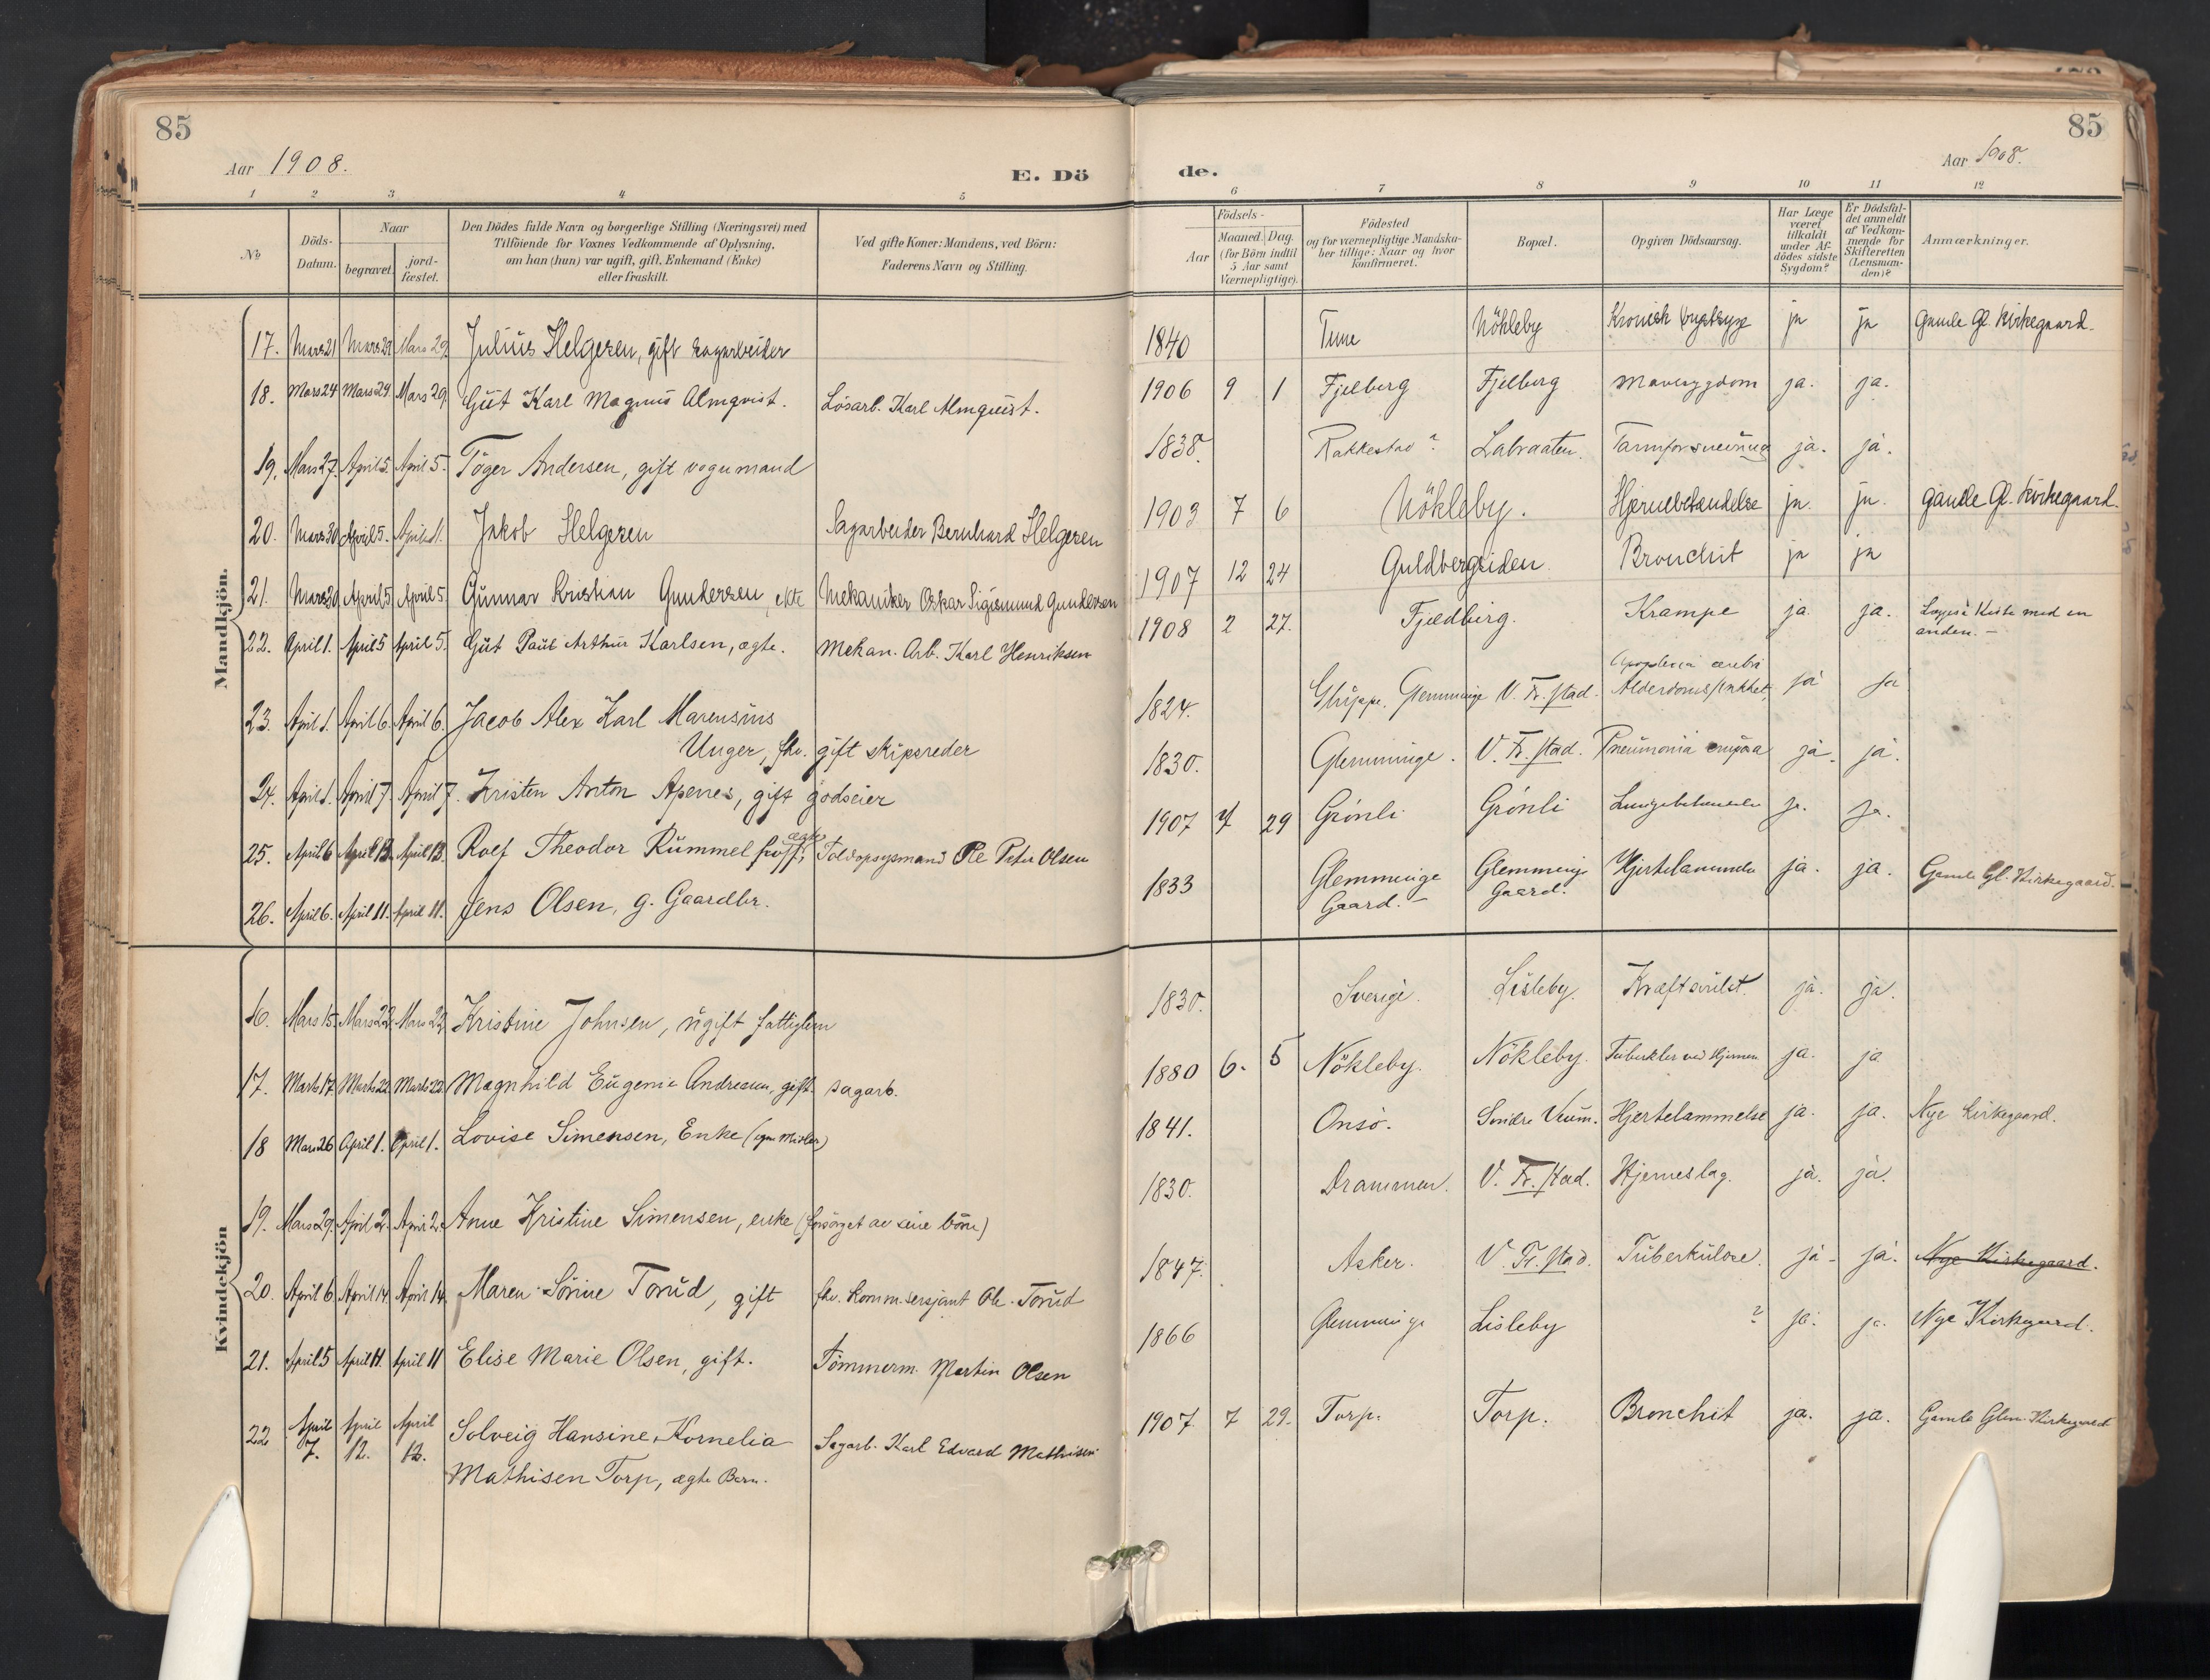 85
Aar 1908.
E. Dö
de.
Aar 1908.
85
1 2 3 4 5 6 7 8 9 10 11 12
No
Döds-
Datum.
Naar
begravet.
jord-
fæstet.
Den Dödes fulde Navn og borgerlige Stilling (Næringsvei) med
Tilföiende for Voxnes Vedkommende af Oplysning,
om han (hun) var ugift, gift, Enkemand (Enke)
eller fraskilt.
Ved gifte Koner: Mandens, ved Börn:
Faderens Navn og Stilling.
Födsels-
Aar
Maaned. Dag.
(for Börn indtil
5 Aar samt
Værnepligtige).
Födested
og for værnepligtige Mandska-
ber tillige: Naar og hvor
konfirmeret.
Bopæl.
Opgiven Dödsaarsag.
Har Læge
været
tilkaldt
under Af-
dödes sidste
Sygdom?
Er Dödsfal-
det anmeldt
af Vedkom-
mende for
Skifteretten
(Lensman-
den)?
Anmærkninger.
Mandkjön.
17. Mars 21 Mars 29 Mars 29. Julius Helgesen, gift sagarbeider 1840 Tune Nökleby Kronisk ja ja Gamle Gl. Kirkegaard.
18. Mars 24 Mars 29. Mars 29. Gut Karl Magnus Almqvist. Lösarb. Karl Almquist. 1906 9 1 Fjelberg Fjelberg Mavesygdom ja. ja.
19. Mars 27. April 5. April 5. Töger Andersen, gift vognmand 1838. Rakkestad? Labraaten. Tarmforsnevring ja. ja.
20. Mars 30 April 5. April 1. Jakob Helgesen Sagarbeider Bernhard Helgesen 1903 7 6 Nökleby. Hjernebetændelse ja. ja. Gamle Gl. Kirkegaard.
21. Mars 30 April 5 April 5 Gunnar Kristian Gundersen, ekte Mekaniker Oskar Sigismund Gundersen 1907 12 24 Guldbergsiden Bronchit ja ja
22. April 1. April 5 April 5. Gut Paul Arthur Karlsen, ægte. Mekan. Arb. Karl Henriksen 1908 2 27. Fjeldberg. Krampe ja. ja. Kiste med en
anden. —
23. April 1. April 6. April 6. Jacob Alex Karl Marensius
Unger, fhv. gift skipsreder 1824. Gluppe, Glemminge V. Fr.stad. Apoplexia cerebri
Alderdomssvakhet, ja ja
24. April 1. April 7. April 7. Kristen Anton Apenes, gift godseier 1830. Glemminge. V. Fr.stad. Pneumonia ja. ja.
25. April 6 April 13. April 13. Rolf Theodor Rummelhoff, ægte Toldopsynsmand Ole Peter Olsen 1907 29 Grönli Grönli ja. ja.
26. April 6. April 11. April 11. Jens Olsen, g. Gaardbr. 1833 Glemminge
Gaard. — Glemminge
Gaard. ja. ja. Gamle Gl. Kirkegaard.
Kvindekjön
16. Mars 15. Mars 22. Mars 22. Kristine Johnsen, ugift fattiglem 1830. Sverige. Lisleby. Kræftsvulst. ja. ja.
17. Marts 17. Marts 22. Marts 22. Magnhild Eugenie Andresen, gift. sagarb. 1880 6. 5 Nökleby. Nökleby. Tuberkler ved Hjernen ja. ja
18 Mars 26 April 1. April 1. Lovise Simensen, Enke 1841. Onsö. Söndre Veum. Hjertelammelse ja. ja. Nye Kirkegaard.
19. Mars 29. April 2. April 2. Anne Kristine Simensen, enke (forsörget av sine börn) 1830. Drammen. V. Fr.stad. Hjerneslag. ja. ja.
20. April 6 April 14 April 14. Maren Sörine Torud, gift fhv. Komm.sersjant Ole Torud 1847. Asker. V. Fr.stad. Tuberkulose. ja. ja. Nye Kirkegaard.
21. April 5 April 11. April 11 Elise Marie Olsen, gift. Tömmerm. Martin Olsen 1866 Glemminge Lisleby ? ja. ja. Nye Kirkegaard.
22 April
7. April
12. April
12. Solveig Hansine Kornelia
Mathisen Torp, ægte Barn. Sagarb. Karl Edvard Mathisen 1907. 7 29. Torp. Torp. Bronchit ja. ja. Gamle Glem. Kirkegaard